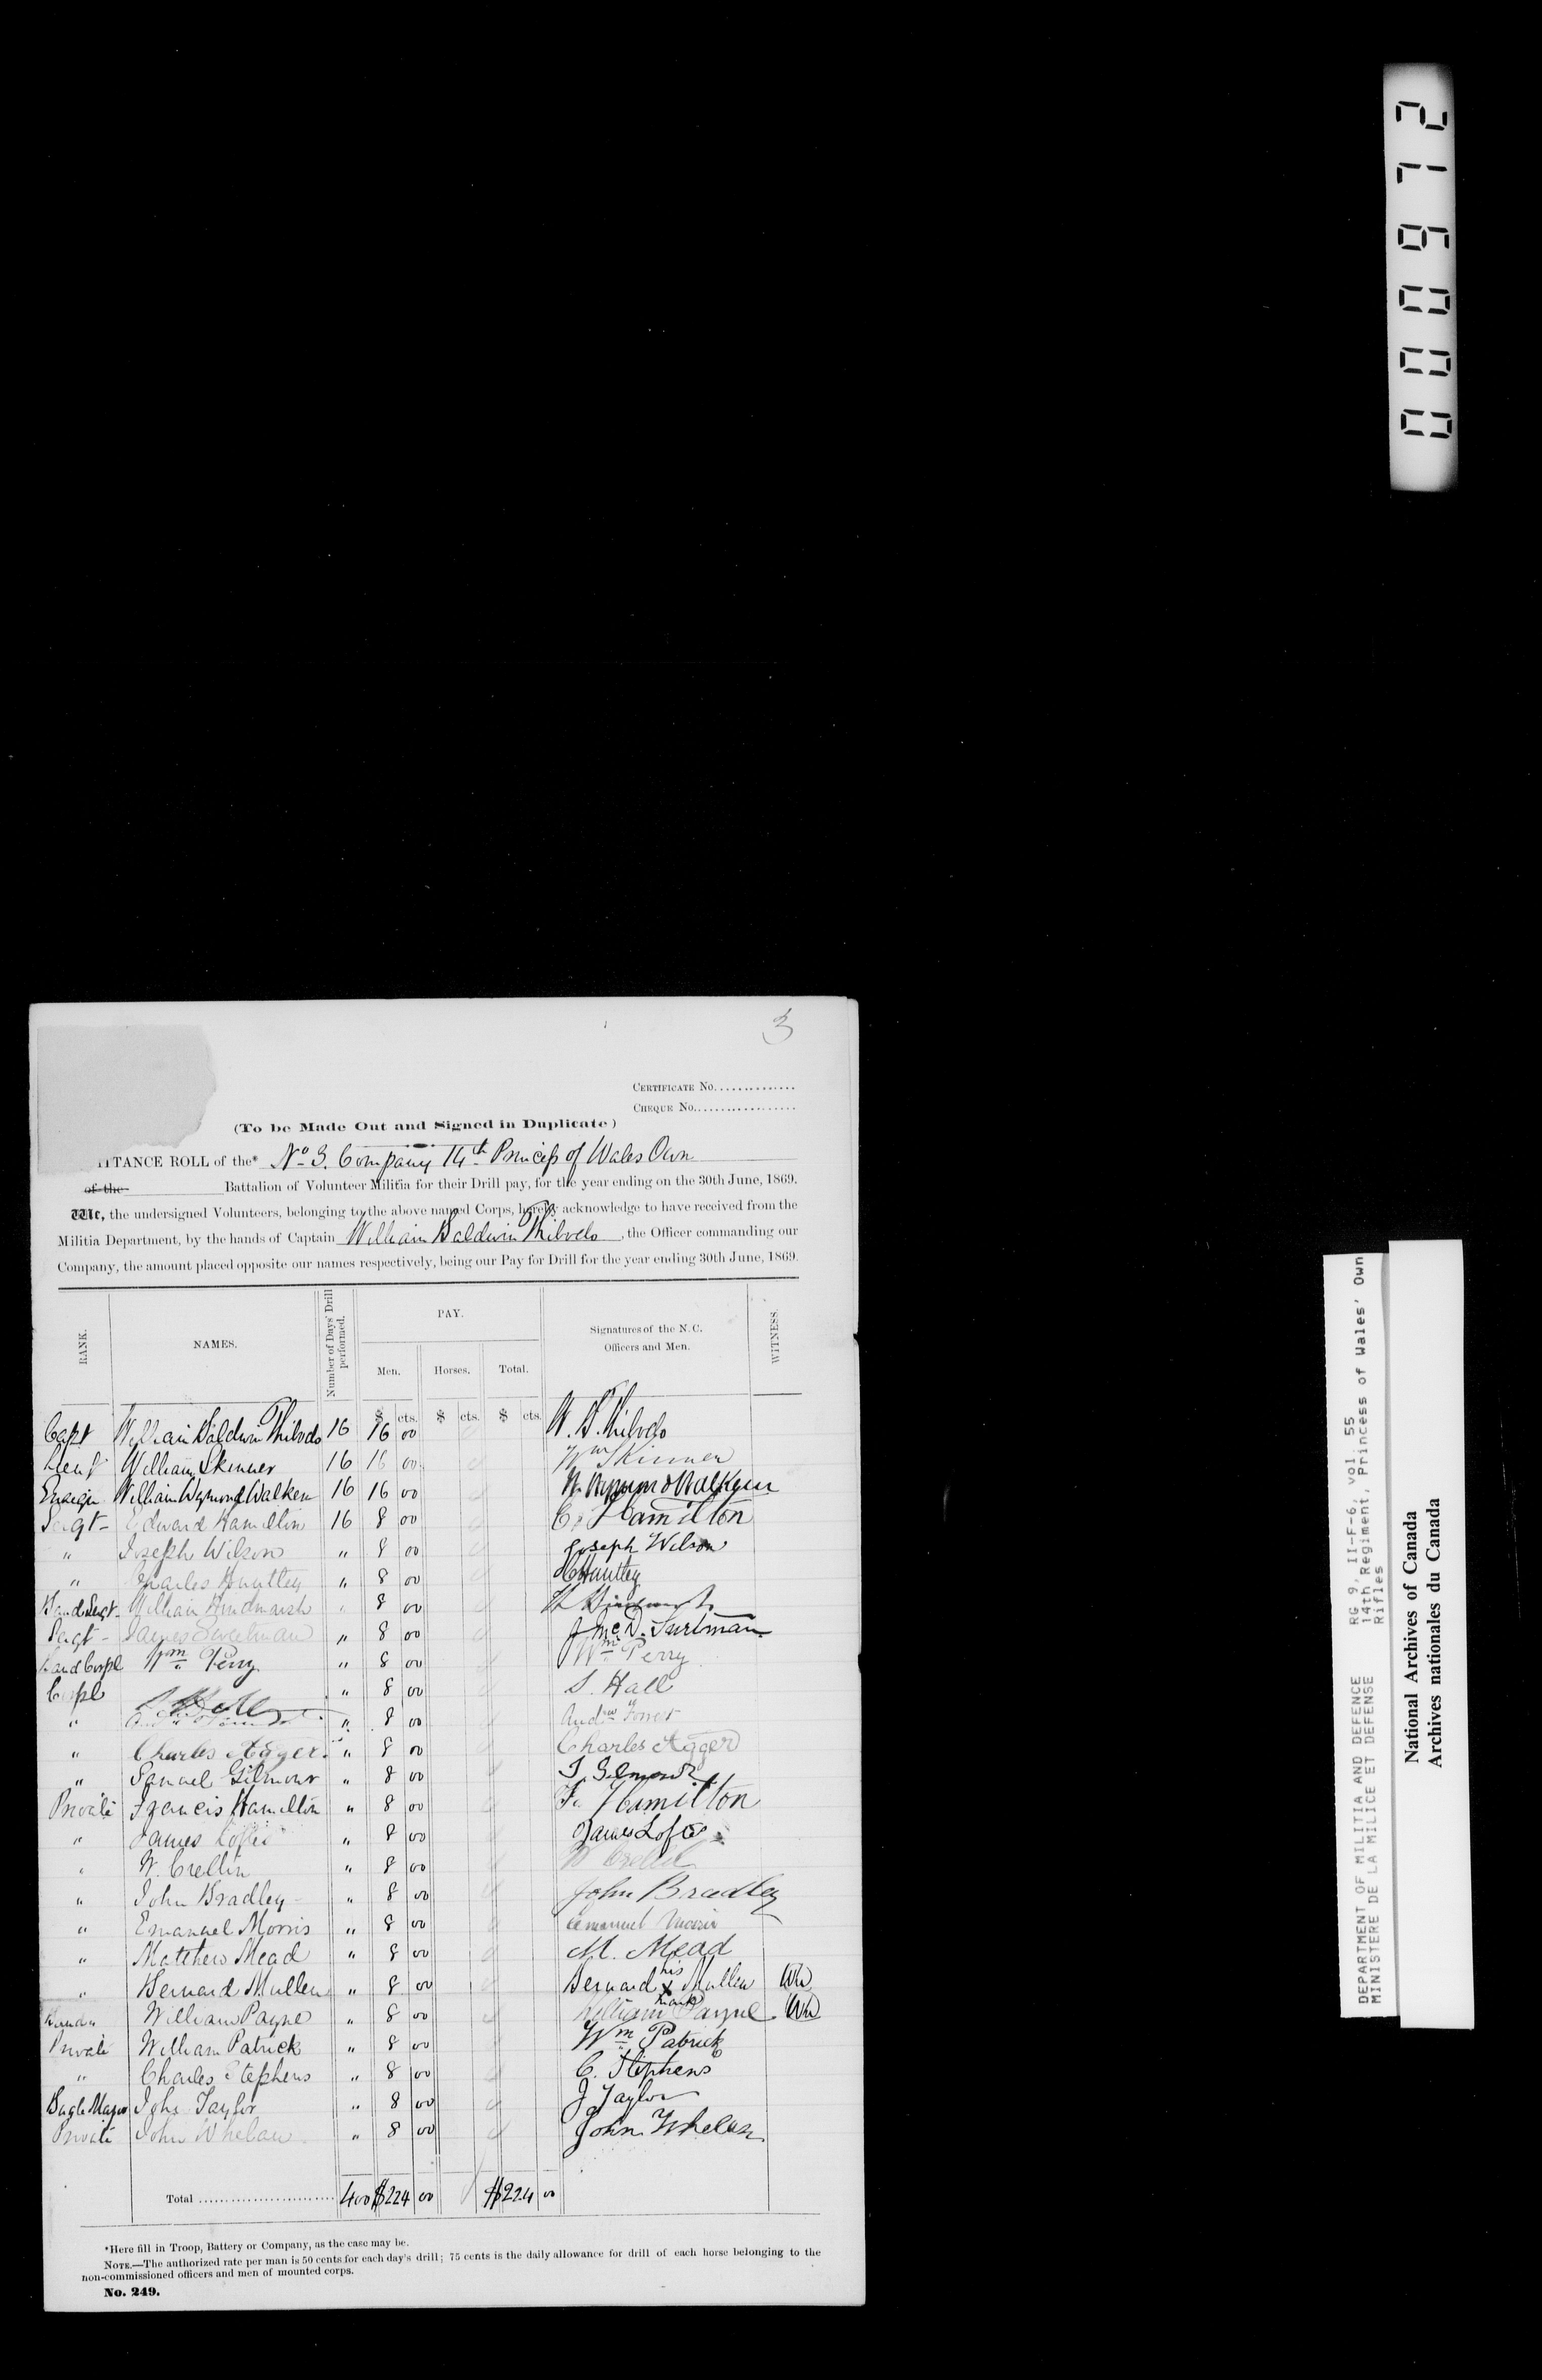 3
CERTIFICATE No..............
CHEQUE No..................
(To be Made Out and Signed in Duplicate)
TTANCE ROLL of the* No 3. Company 14th Princess of Wales Own
of the Battalion of Volunteer Militia for their Drill pay, for the year ending on the 30th June, 1869.
We, the undersigned Volunteers, belonging to the above named Corps, hereby acknowledge to have received from the
Militia Department, by the hands of Captain William Baldwin Thibodo, the Officer commanding our
Company, the amount placed opposite our names respectively, being our Pay for Drill for the year ending 30th June, 1869.
RANK. NAMES. Number of Days' Drill performed. PAY. Signatures of the N.C. Officers and Men. WITNESS.
Men. Horses. Total.
$ cts. $ cts. $ cts.
Capt William Baldwin Thibodo 16 16 00 W. B. Thibodo
Lieut William Skinner 16 16 00 Wm Skinner
Ensign William Wymond Walkem 16 16 00 W. Wymond Walkem
Sergt Edward Hamilton 16 8 00 E. Hamilton
" Joseph Wilson " 8 00 Joseph Wilson
" Charles Huntley " 8 00 C Huntley
Band Sergt William Hindmarsh " 8 00
Sergt " 8 00
Band Corpl Wm Perry " 8 00 Wm Perry
Corpl S. Hall " 8 00 S. Hall
" " 8 00 Andw
" Charles Agger " 8 00 Charles Agger
" Samuel Gilmour " 8 00 S. Gilmour
Private Francis Hamilton " 8 00 F. Hamilton
" James " 8 00 James
" W. Crellin " 8 00 W Crellin
" John Bradley " 8 00 John Bradley
" Emanuel Morris " 8 00 emanuel
" Matthew Mead " 8 00 M. Mead
" Bernard Mullen " 8 00 Bernard his x mark Mullen
Band " William Payne " 8 00 William Payne
Private William Patrick " 8 00 Wm Patrick
" Charles Stephens " 8 00 C. Stephens
Bugle Major John Taylor " 8 00 J Taylor
Private John Whelan " 8 00 John Whelan
Total .......................... 400 $224 00 $224 00
*Here fill in Troop, Battery or Company, as the case may be.
NOTE.—The authorized rate per man is 50 cents for each day's drill; 75 cents is the daily allowance for drill of each horse belonging to the
non-commissioned officers and men of mounted corps.
No. 249.
000972
DEPARTMENT OF MILITIA AND DEFENCE RG 9, II-F-6, vol. 55
MINISTERE DE LA MILICE ET DEFENSE 14th Regiment, Princess of Wales' Own
Rifles
National Archives of Canada
Archives nationales du Canada